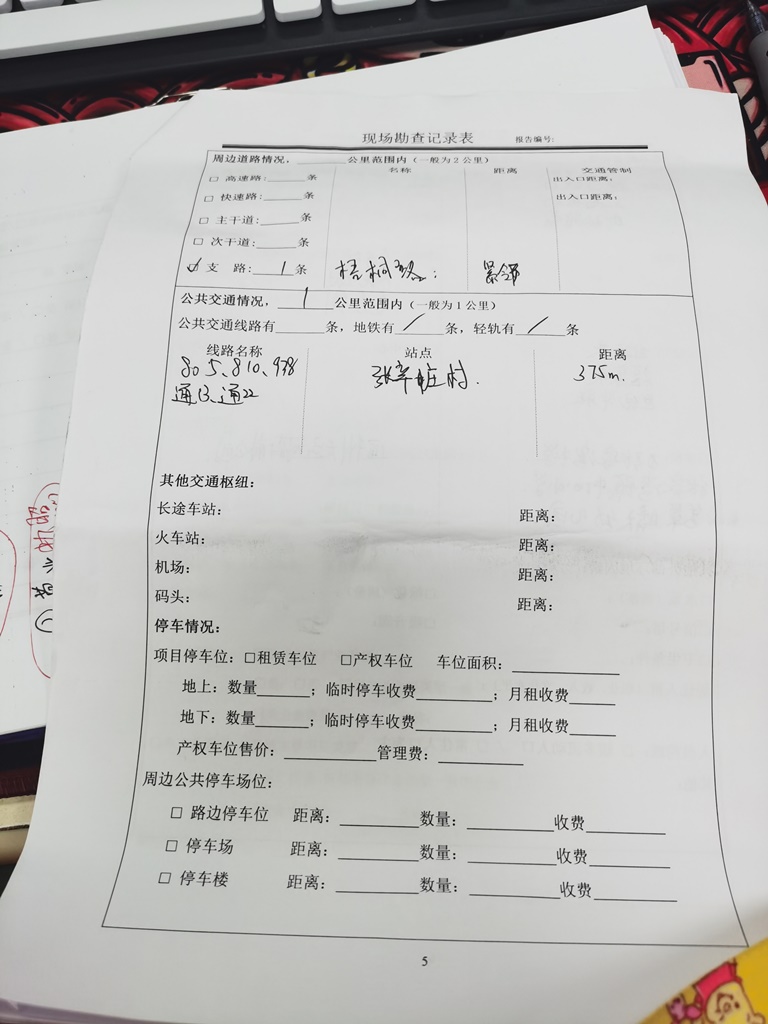 现场勘查记录表 报告编号:
周边道路情况，______公里范围内（一般为2公里）
名称 距离 交通管制
□ 高速路:______条 出入口距离：
□ 快速路:______条 出入口距离：
□ 主干道:______条
□ 次干道:______条
☑ 支 路:__1__条 梧桐路； 紧邻
公共交通情况，__1__公里范围内（一般为1公里）
公共交通线路有______条，地铁有__/__条，轻轨有__/__条
线路名称 站点 距离
805、810、938 张辛庄村. 375m.
通13、通22
其他交通枢纽：
长途车站： 距离：
火车站： 距离：
机场： 距离：
码头： 距离：
停车情况：
项目停车位：□租赁车位 □产权车位 车位面积：__________
地上：数量______；临时停车收费________；月租收费_____
地下：数量______；临时停车收费________；月租收费_____
产权车位售价：__________管理费：_________
周边公共停车场位：
□ 路边停车位 距离：________数量：_________收费________
□ 停车场 距离：________数量：_________收费________
□ 停车楼 距离：________数量：_________收费________
5